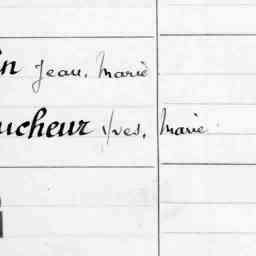 in Jean, Marie
ucheur Yves, Marie